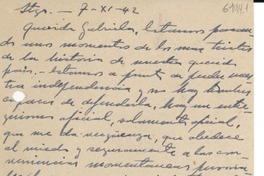 Stgo. - 7-XI-42
Querida Gabriela, estamos pasan
do unos momentos de los mas tristes
de la historia de nuestro querido
país. Estamos a punto de perder nues
tra independencia, y no hay hombres
capaces de defenderla. Hay un entre
guismo oficial, solamente oficial,
que me da vergüenza, que obedece
al miedo y seguramente a las con
veniencias momentaneas